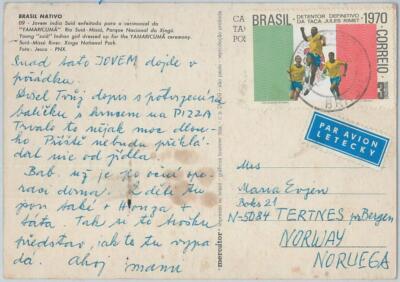 BRASIL NATIVO
09 - Jovem índia Suiá enfeitada para o cerimonial da
"YAMARICUMÃ". Rio Suiá-Missú, Parque Nacional do Xingú.
Young "suiá" Indian girl dressed up for the YAMARICUMÃ ceremony.
Suiá-Missú River. Xingu National Park
Foto: Jesco - PNX.
BRASIL 1970
DETENTOR DEFINITIVO
DA TAÇA JULES RIMET
CORREIO
PAR AVION
LETECKY
Snad tato JOVEM dojde v
pořádku.
Došel Tvůj dopis s potvrzením
balíčku s kursem na PIZZA
Trvalo to nějak moc dlou-
ho. Příště nebudu překlá-
dat nic od jídla.
Bab. už je po oční ope-
raci doma. U dětí tu
jsou také + Honza +
táta. Tak si to trošku
představ, jak to tu vypa-
dá. Ahoj mami
Mrs
Maria Evzen
Boks 21
N-5084 TERTNES pr Bergen
NORWAY
NORUEGA
"mercator"